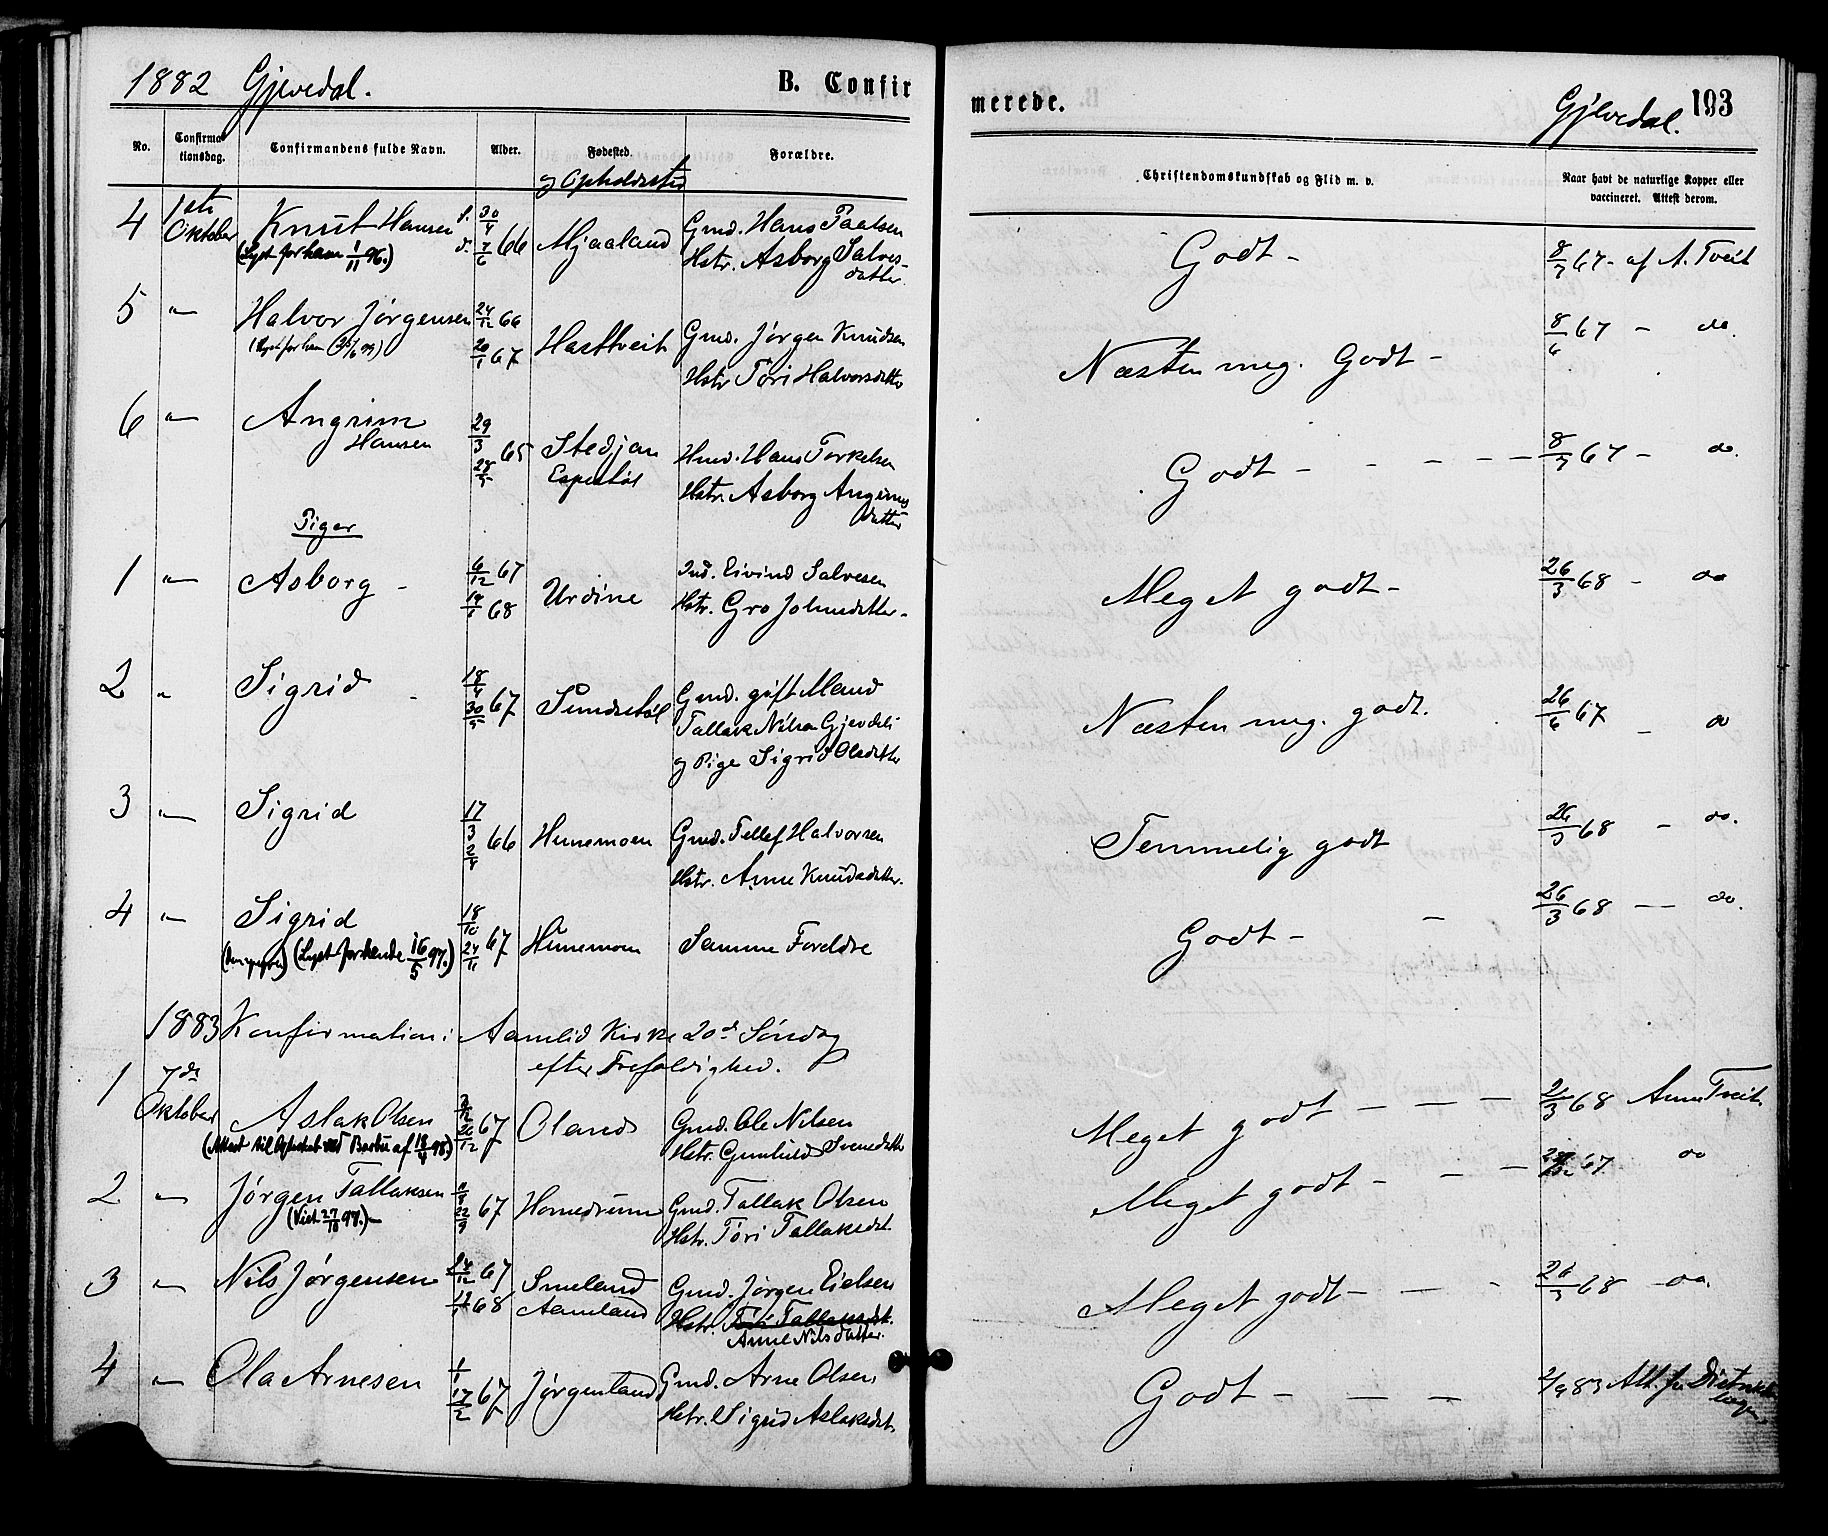 1882 Gjevedal.
B. Confir
merede.
Gjevedal. 193
No.
Confirma
tionsdag.
Confirmandens fulde Navn.
Alder.
Fødested.
og Opholdssted
Forældre.
Christendomskundskab og Flid m. v.
Naar havt de naturlige Kopper eller
vaccineret. Attest derom.
4 1ste Oktober Knut Hansen f. 30/4 d. 7/6 66 Mjaaland Gmd. Hans Paalsen
(Lyst for ham 1/11 96.) Hstr. Asborg Salves-
datter.
Godt - 8/7 67 - af A. Tveit
5 " Halvor Jørgensen 24/12 66 20/1 67 Hasttveit Gmd. Jørgen Knudsen
Hstr Tori Halvorsdatter
Næsten meg. Godt - 8/6 67 - do.
6 " Angrim
Hansen 29/3 65 Stedjan Hmd. Hans Torkelsen
Espestøl Hstr. Asborg Angrims
datter
Godt - - - - - 8/7 67 - do.
Piger
1 " Asborg - 6/12 67 68 Urdine Ind. Eivind Salvesen
Hstr. Gro Johnsdatter -
Meget godt - 26/3 68 - do
2 " Sigrid - 18/4 30/5 67 Sundsstøl Gmd. gift Mand
Tallak Nilsen Gjevdeli
og Pige Sigrid Olsdatter
Næsten meg. godt. 26/6 67 - do
3 " Sigrid 17/3 2/4 66 Hunemoen Gmd. Tellef Halvorsen
Hstr. Anne Knudsdatter.
Temmelig godt 26/3 68 - do.
4 " Sigrid 18/10 24/11 67 Hunemoen Samme Foreldre
(Lyst for hende 16/5 97.)
Godt - - 26/3 68 - - do.
1883 Konfirmation i Aamlid Kirke 20de Søndag
efter Trefoldighed.
1 7de Oktober Aslak Olsen 2/12 26/12 67 Olands Gmd. Ole Nilsen
Hstr. Gunhild Svensdatter
Meget godt - - - 26/3 68 Anne Tveit.
2 " Jørgen Tallaksen 22/9 67 Homdrum Gmd. Tallak Olsen
(Viet 27/10 97.) - Hstr. Tori Tallaksdt.
Meget godt - - - 67 do
3 " Nils Jørgensen 24/12 67 68 Smeland Gmd. Jørgen Eielsen
Aamland Hstr. Tori Tallaksdt.
Anne Nilsdatter.
Meget godt - - - 26/3 68 - do.
4 " Ola Arnesen 1/1 17/2 67 Jørgenland Gmd. Arne Olsen
Hstr. Sigrid Aslaksdt.
Godt - - - 2/9 83 Att. fr